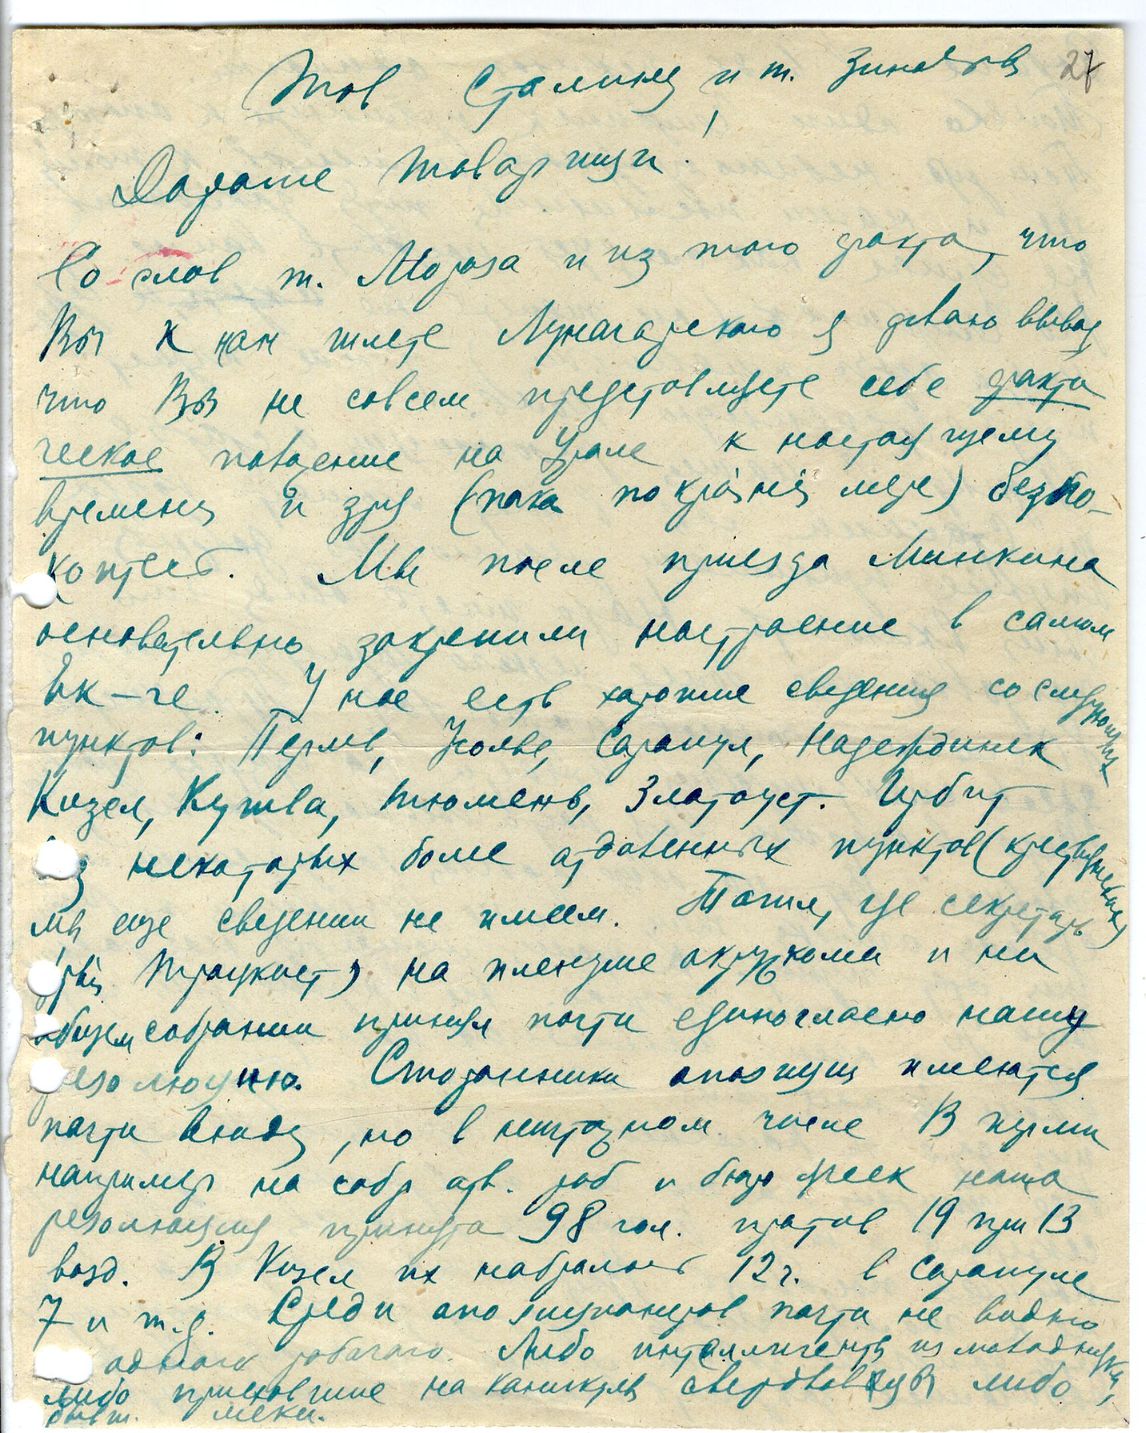 27
Тов Сталину и т. Зиновьеву
Дорогие товарищи!
Со слов т. Мороза и из того факта, что
Вы к нам шлете Луначарского я делаю вывод,
что Вы не совсем представляете себе факти
ческое поведение на Урале к настоящему
времени и зря (пока по крайней мере) безпо-
коитесь. Мы после приезда Минкина
основательно закрепили настроение в самом
Ек-ге. У нас есть хорошие сведения со следующих
пунктов: Пермь, Усолье, Сарапул, Надеждинск
Кизел, Кушва, Тюмень, Златоуст. Ирбит
Из некоторых более отдаленных пунктов (крестьянских)
мы еще сведений не имеем. Тагил, где секретарь
троцкист) на пленуме окружкома и на
общем собрании принял почти единогласно нашу
резолюцию. Сторонники опозиции имеются
почти всюду, но в ничтожном числе В Перми
например на собр отв. раб и бюро ячеек наша
резолюция принята 98 гол. против 19 при 13
возд. В Кизел их набралось 12 ч. в Сарапуле
7 и т.д. Среди опозиционеров почти не видно
одного рабочего. Либо интеллигенты из молодняка,
либо приехавшие на каникулы свердловцы либо
бывш. меки.